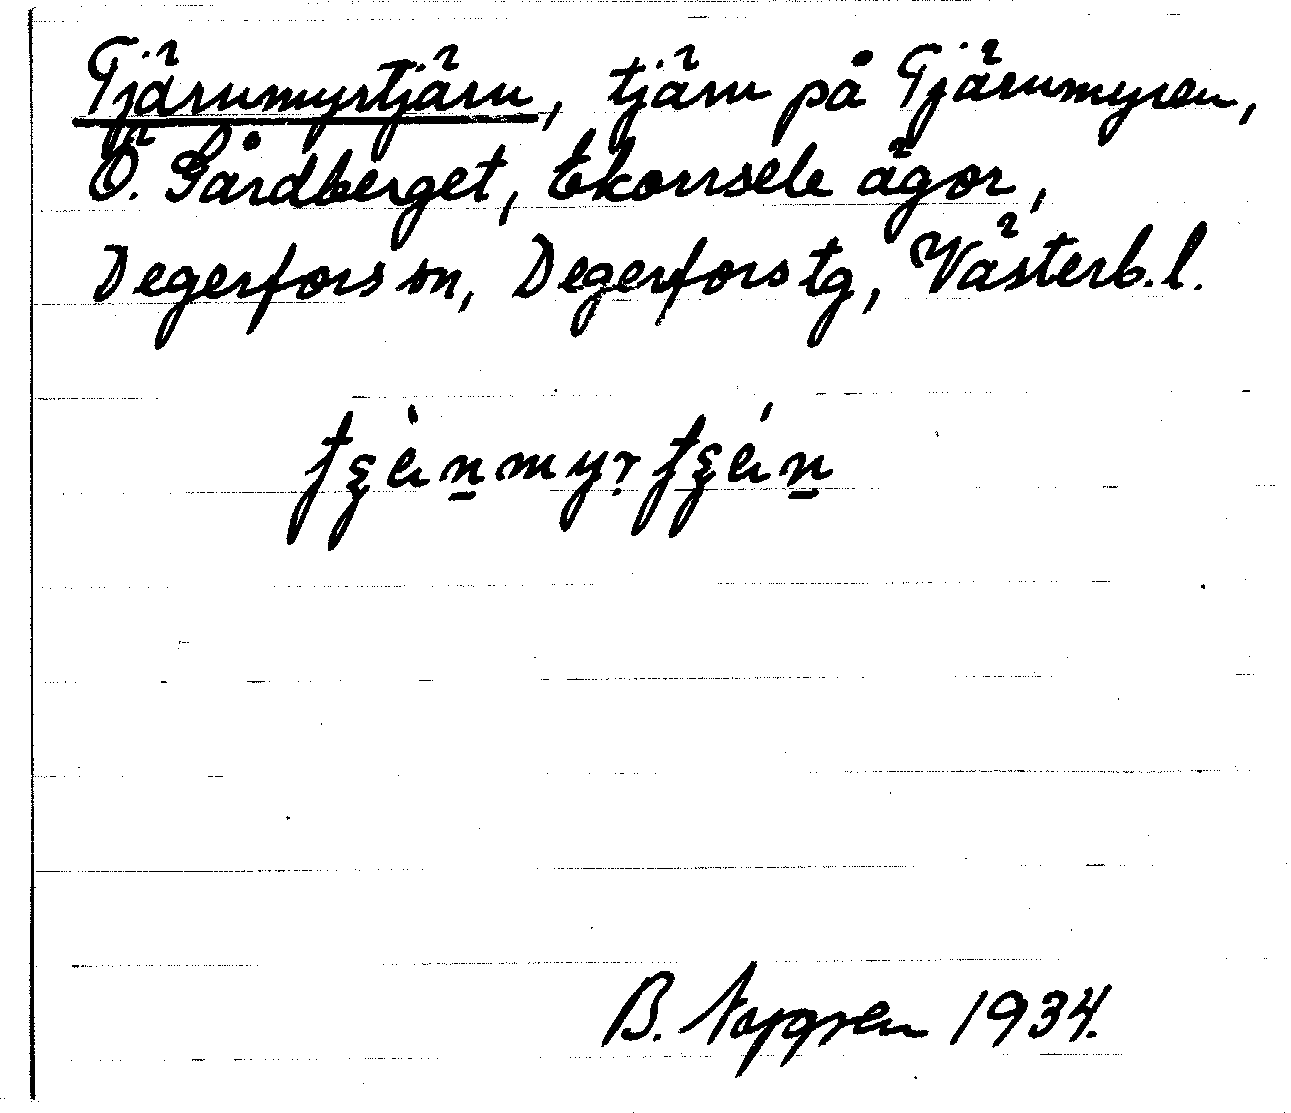 Tjärnmyrtjärn, tjärn på Tjärnmyren,
Ö. Gårdberget, Ekorrsele ägor,
Degerfors sn, Degerfors tg, Västerb. l.
B. 1934.